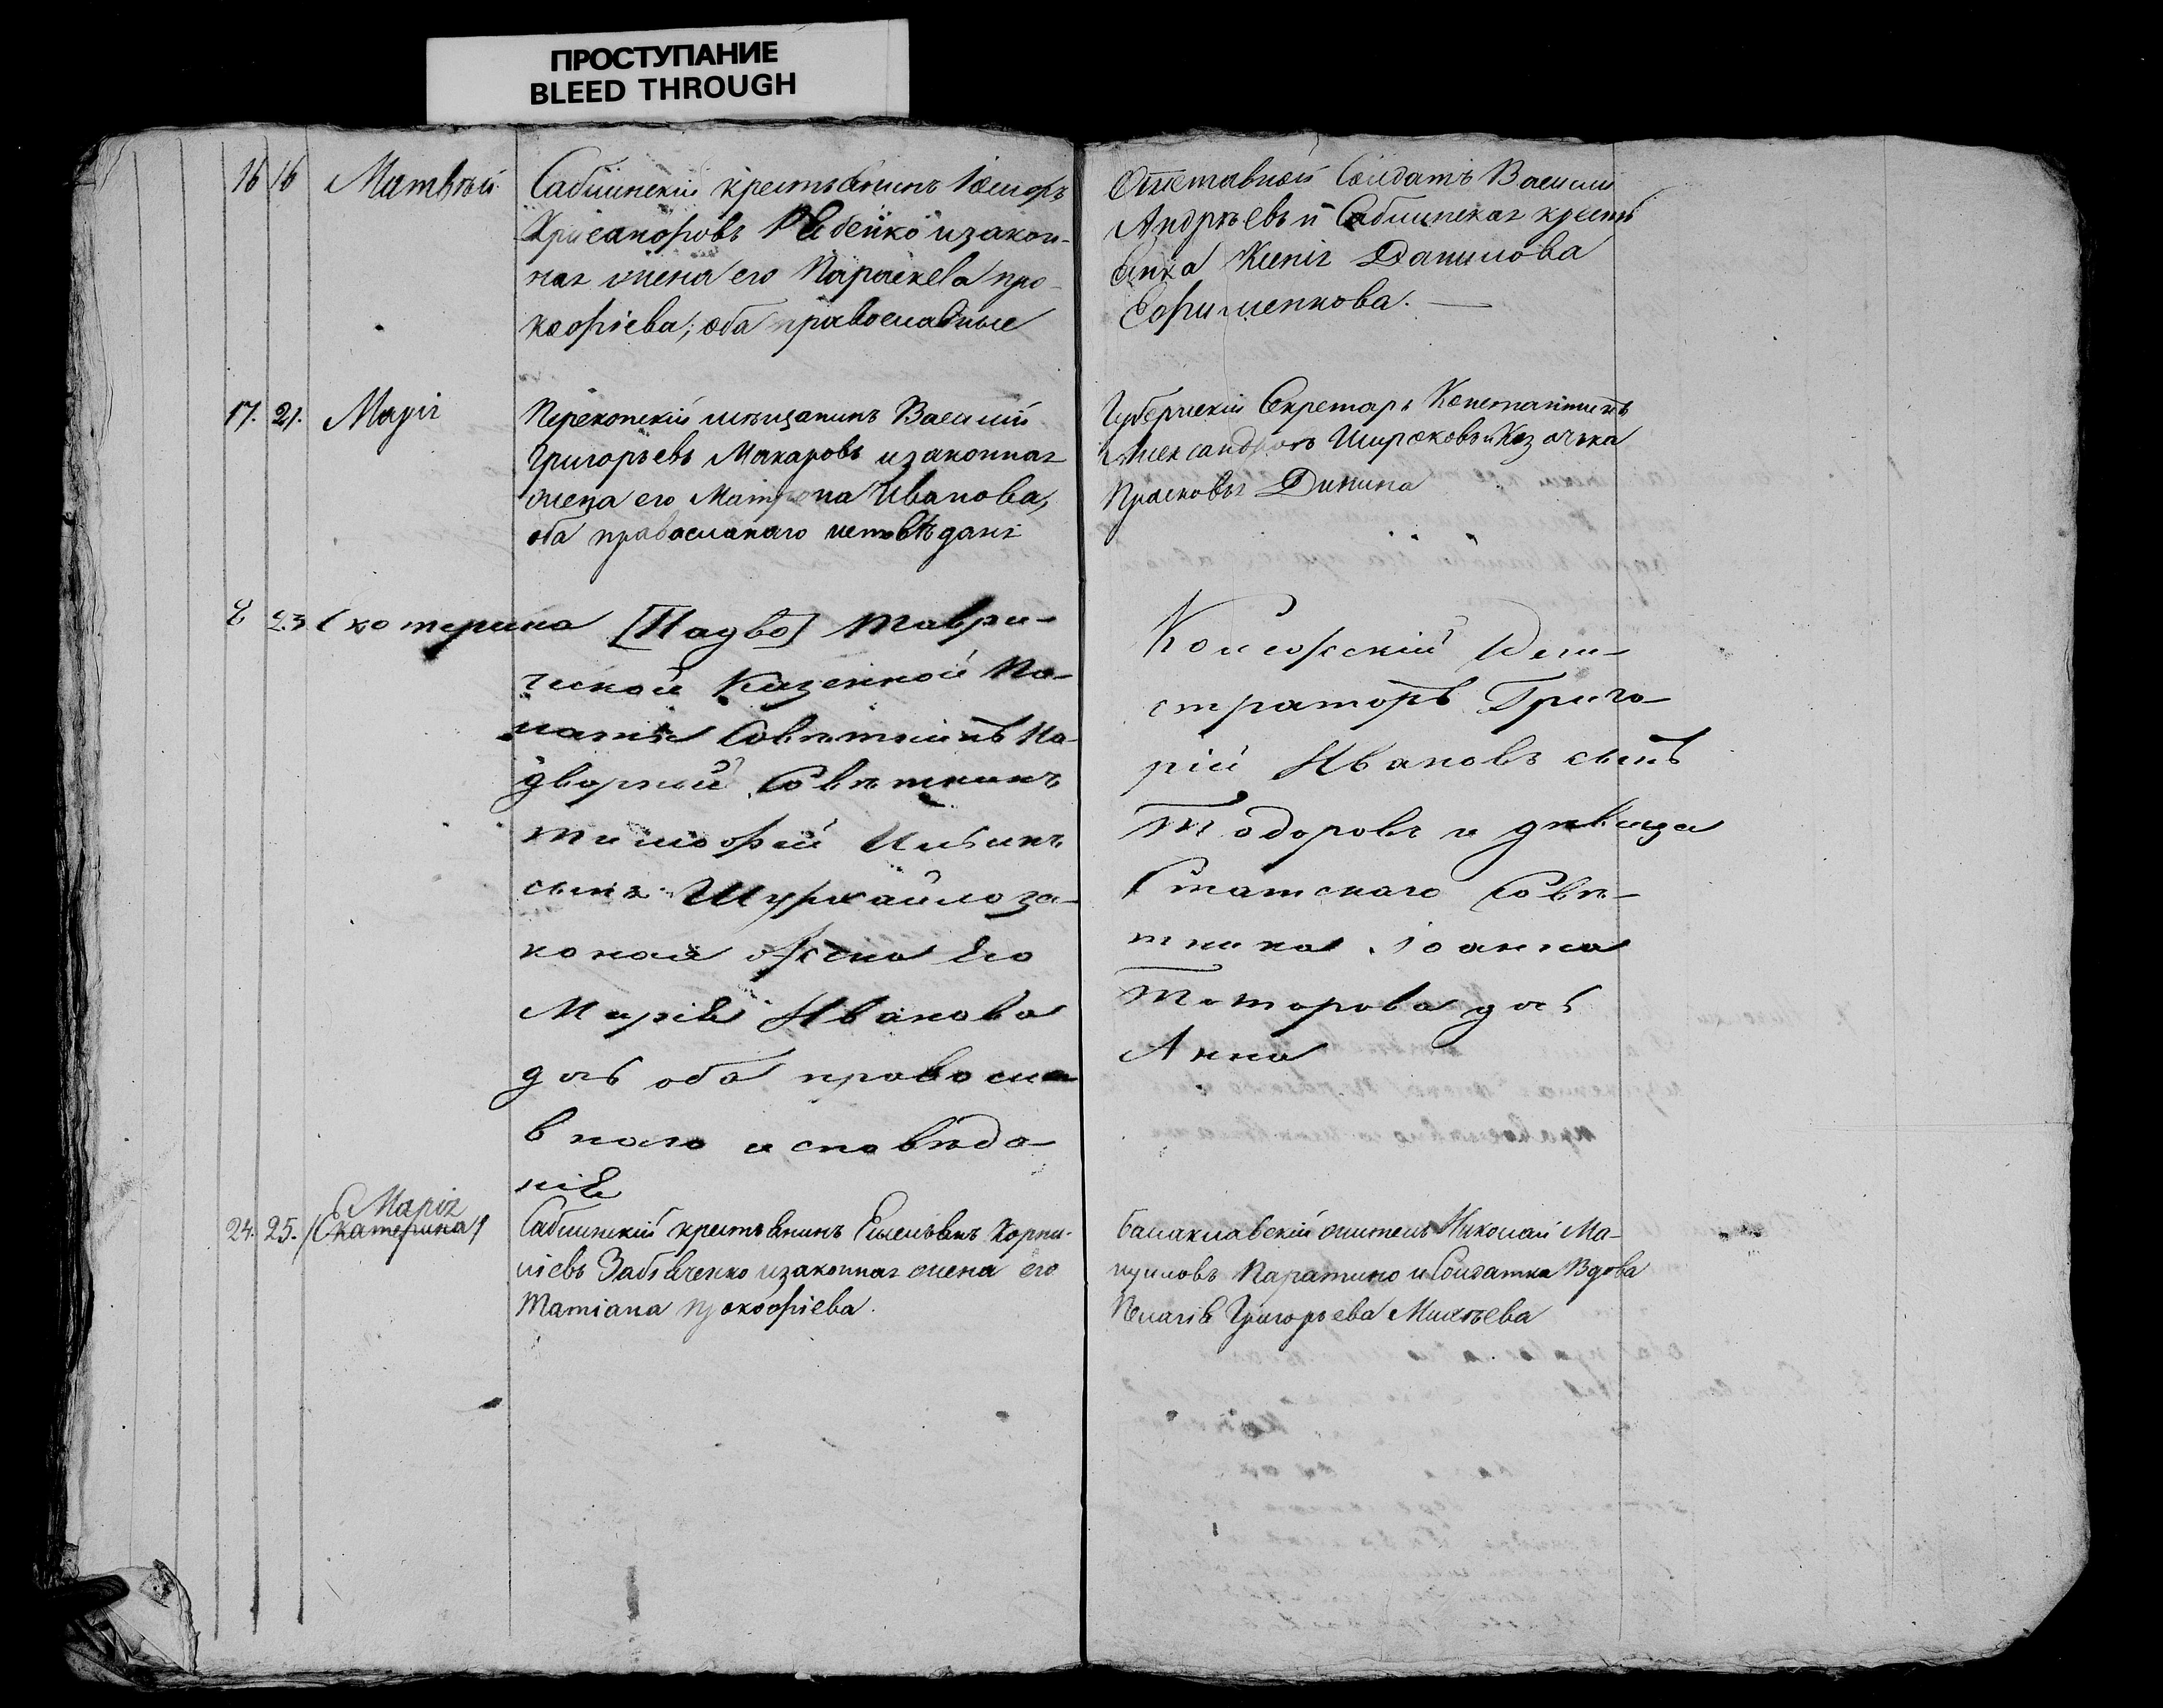 ПРОСТУПАНИЕ
BLEED THROUGH
16 16 Матвѣй
Саблинскій крестьянинъ
Хрисанфовъ изакон-
ная жена его Параскева про-
кофіева; оба православные
Отставной Солдатъ Василій
Андрѣевъ и Саблинская крестя
янка Ксенія Данилова
Ефименкова.
17. 21. Марія
Перекопскій мѣщанинъ Василій
Григорьевъ Макаровъ изаконная
жена его Матрона Иванова,
оба православнаго исповѣданія
Губернскій Секретарь Константинъ
Александровъ Широковъ и Казачка
Прасковья Дикина
23 Екатерина
[Надво] Таври-
ческой Казенной Па-
латы Совѣтникъ На-
дворной Совѣтникъ
Тимофей Ильинъ
сынъ за-
коная Жена Его
Марія Иванова
дочь оба правосла
внаго исповѣда-
нія
Колежскій Реги-
страторъ Григо-
рій Ивановъ сынъ
Тодоровъ и дѣвица
Статскаго Совѣ-
тника Іоанна
дочь
Анна
24. 25. Марія
(Екатерина)
Саблинскій крестьянинъ Емельянъ Корни-
ліевъ изаконная жена его
Татіана прокофіева.
Балаклавскій житель Николай Ма-
нуиловъ Паратино и Солдатка Вдова
Пелагія Григорьева Михѣева